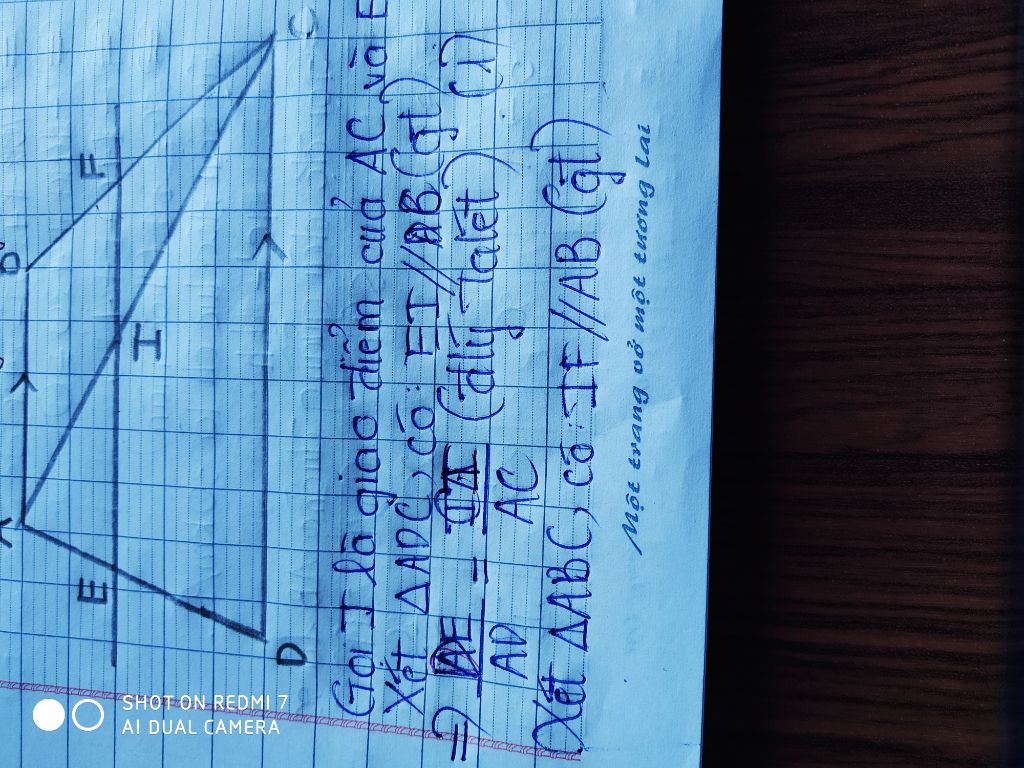 A
B
E
F
I
D
C
Gọi I là giao điểm của AC và E
Xét ΔADC, có: EI//AB (gt)
=> DE/AD = CI/AC (đlý Talét) (1)
(Xét ΔABC, có: IF//AB (gt)
Một trang vở một tương lai
SHOT ON REDMI 7
AI DUAL CAMERA